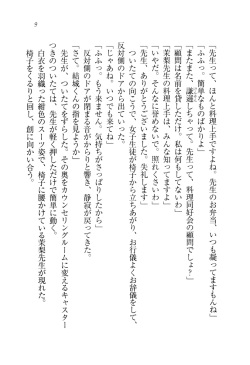 9
「先生って、ほんと料理上手ですよね。先生のお弁当、いつも凝ってますもんね」
「ふふっ。簡単なものばかりよ」
「またまた、謙遜しちゃって。先生って、料理同好会の顧問でしょ?」
「顧問は名前を貸しただけ。私は何もしてないわ」
「先生の料理上手は、みんな知ってますよ」
「いやだ。そんなに誉めないで。照れくさいわ」
「先生、ありがとうございました。失礼します」
ついたての向こうで、女子生徒が椅子から立ちあがり、お行儀よくお辞儀をして、
反対側のドアから出ていった。
「じゃあね。いつでも来てね」
「ふふっ。もう来ません。気持ちがさっぱりしたから」
反対側のドアが閉まる音がからりと響き、静寂が戻ってきた。
「さて。結城くんの指を見ようか」
先生が、ついたてをずらした。その奥をカウンセリングルームに変えるキャスター
つきのついたては、先生が軽く押しただけで簡単に動く。
白衣を羽織った紺色のスーツ姿で、椅子に腰かけている茉梨先生が現れた。
椅子をくるりと回し、創に向かいあう。